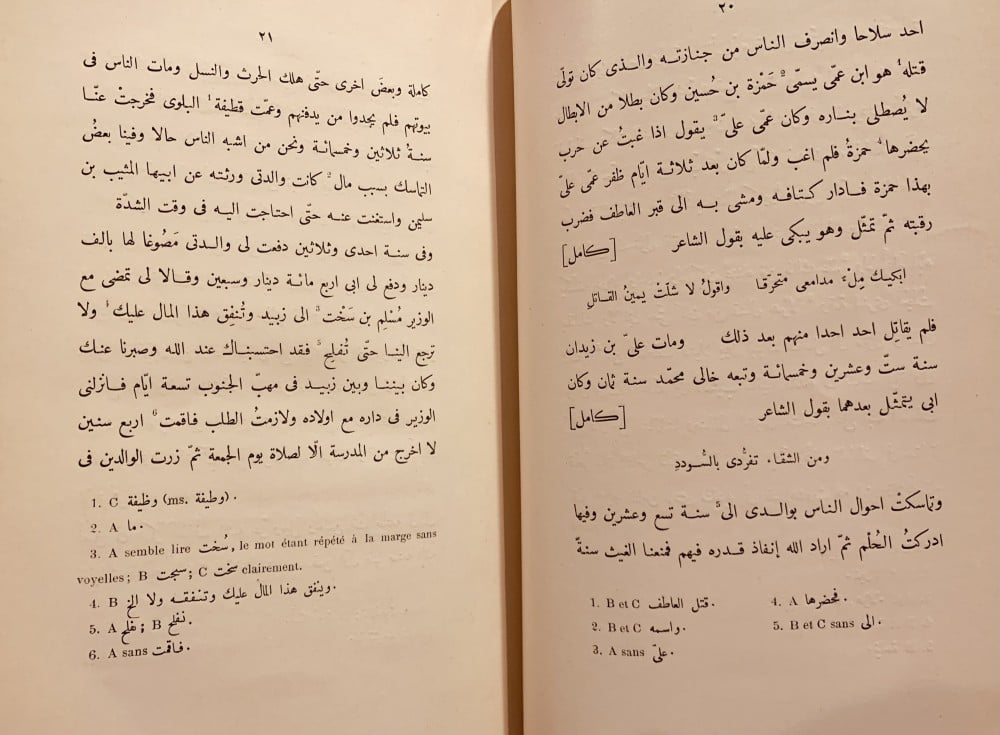 ٢٠
احد سلاحا وانصرف الناس من جنازتـه والـذى كان تولّى
قتله¹ هو ابن عمّى يسمّى² حَمْزة بن حُسين وكان بطلا من الابطال
لا يُصطلى بناره وكان عمّى علىّ³ يقول اذا غبتُ عن حرب
يحضرها⁴ حمزةُ فلم اغب ولمّا كان بعد ثلاثة ايّام ظفر عمّى علىّ
بهذا حمزة فـادار كـتافـه ومشى بـه الى قبر العاطف فضرب
رقبته ثمّ تمثّل وهو يبكى عليه بقول الشاعر [كامل]
ابكيـك مِلْءَ مدامعى متحرّقـا واقولُ لا شلّتْ يمينُ القـاتلِ
فلم يقاتِل احد احدا منهم بعد ذلك ومات علىّ بن زيدان
سنة ستّ وعشرين وخمسمائـة وتبعه خالى محمّد سنة ثمان وكان
ابى يتمثّل بعدهما بقول الشاعر [كامل]
ومن الشقـاء تفرُّدى بالسُّوددِ
وتماسكتْ احوال الناس بوالـدى الى⁵ سنـة تسع وعشرين وفيها
ادركتُ الحُلْم ثمّ اراد الله إنفاذ قـدره فيهم فمنعنا الغيث سنةً
1. B et C قتل العاطف.
2. B et C واسمه.
3. A sans علىّ.
4. A فحضرها.
5. B et C sans الى.
٢١
كاملة وبعضَ اخرى حتّى هلك الحرث والنسل ومات الناس فى
بيوتهم فلم يجدوا من يدفنهم وعمّت قطيفة¹ البلوى فخرجتْ عنّـا
سنةُ ثلاثين وخمسمائة ونحن من اشبه الناس حالا وفينا بعضُ
التماسك بسبب مال² كانت والدتى ورثته عن ابيها المثيب بن
سليمن واستغنت عنـه حتّى احتاجت اليـه فى وقت الشدّة
وفى سنـة احدى وثلاثين دفعت لى والـدتى مَصُوغا لها بالف
دينار ودفع لى ابى اربع مائـة دينار وسبعين وقـالا لى تمضى مع
الوزير مُسْلِم بن سَخْت³ الى زبيد وتُنفِق هذا المال عليك⁴ ولا
ترجع الينـا حتّى تُفلِح⁵ فقد احتسبنـاك عند الله وصبرنا عنـك
وكان بيننـا وبين زبيـد فى مهبّ الجنوب تسعـة ايّام فـانزلنى
الوزير فى داره مع اولاده ولازمتُ الطلب فاقمت⁶ اربع سنـين
لا اخرج من المدرسة الّا لصلاة يوم الجمعة ثمّ زرت الوالدين فى
1. C وظيفة (ms. وطيفة).
2. A ما.
3. A semble lire سُخت, le mot étant répété à la marge sans
voyelles; B سبجت; C سخت clairement.
4. B وينفق هذا المال عليك وتنفقـه ولا الخ.
5. A نفلح; B نفلح.
6. A sans فـاقمت.